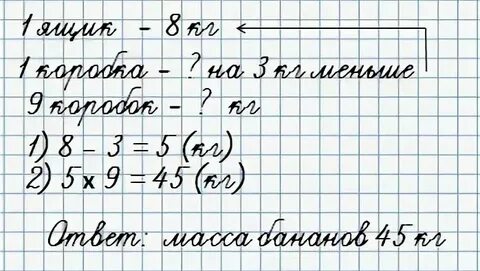 1 ящик - 8 кг
1 коробка - ? на 3 кг меньше
9 коробок - ? кг
1) 8 - 3 = 5 (кг)
2) 5 х 9 = 45 (кг)
Ответ: масса бананов 45 кг